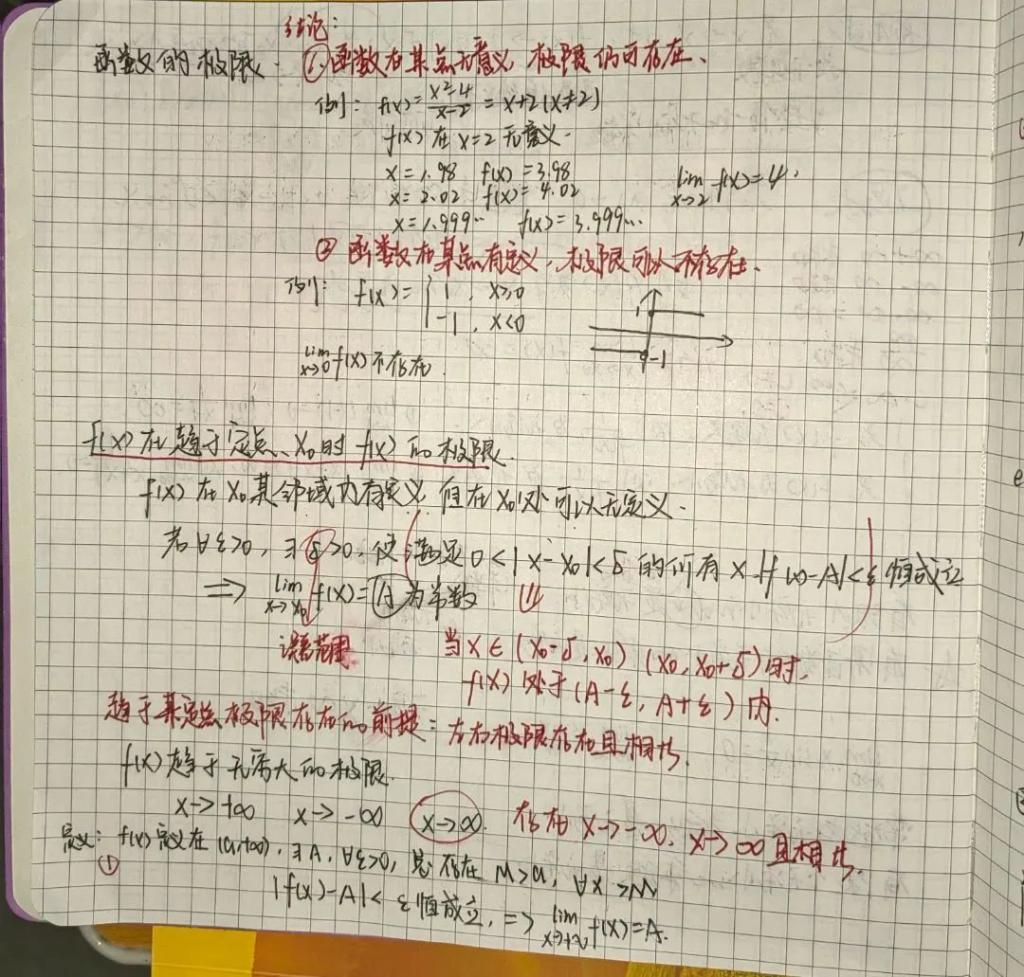 结论:
函数的极限. ①函数在某点无意义 极限仍可存在、
例: f(x)=\frac{x²-4}{x-2} = x+2(x≠2)
f(x) 在 x=2 无意义.
x=1.98 f(x)=3.98
x=2.02 f(x)=4.02 \lim_{x→2} f(x)=4.
x=1.999… f(x)=3.999…
② 函数在某点有定义,极限可以不存在.
例: f(x)= { 1, x≥0
-1, x<0
1
-1
\lim_{x→0} f(x) 不存在.
f(x) 在趋于定点、x₀时 f(x) 的极限.
f(x) 在 x₀某邻域内有定义 但在 x₀处可以无定义.
若∀ε>0, ∃δ>0, 使满足 0<|x-x₀|<δ 的所有 x |f(x)-A|<ε 恒成立
⇒ \lim_{x→x₀} f(x)=A 为常数
误差范围 当 x∈(x₀-δ, x₀) (x₀, x₀+δ)时,
f(x) 处于(A-ε, A+ε)内.
趋于某定点极限存在的前提: 左右极限存在且相等.
f(x)趋于无穷大的极限.
x→+∞ x→-∞ x→∞. 存在 x→-∞, x→∞ 且相等.
定义: f(x)定义在(a,+∞), ∃A, ∀ε>0, 总存在 M>a, ∀x>M
①
|f(x)-A|<ε恒成立, => \lim_{x→+∞} f(x)=A.